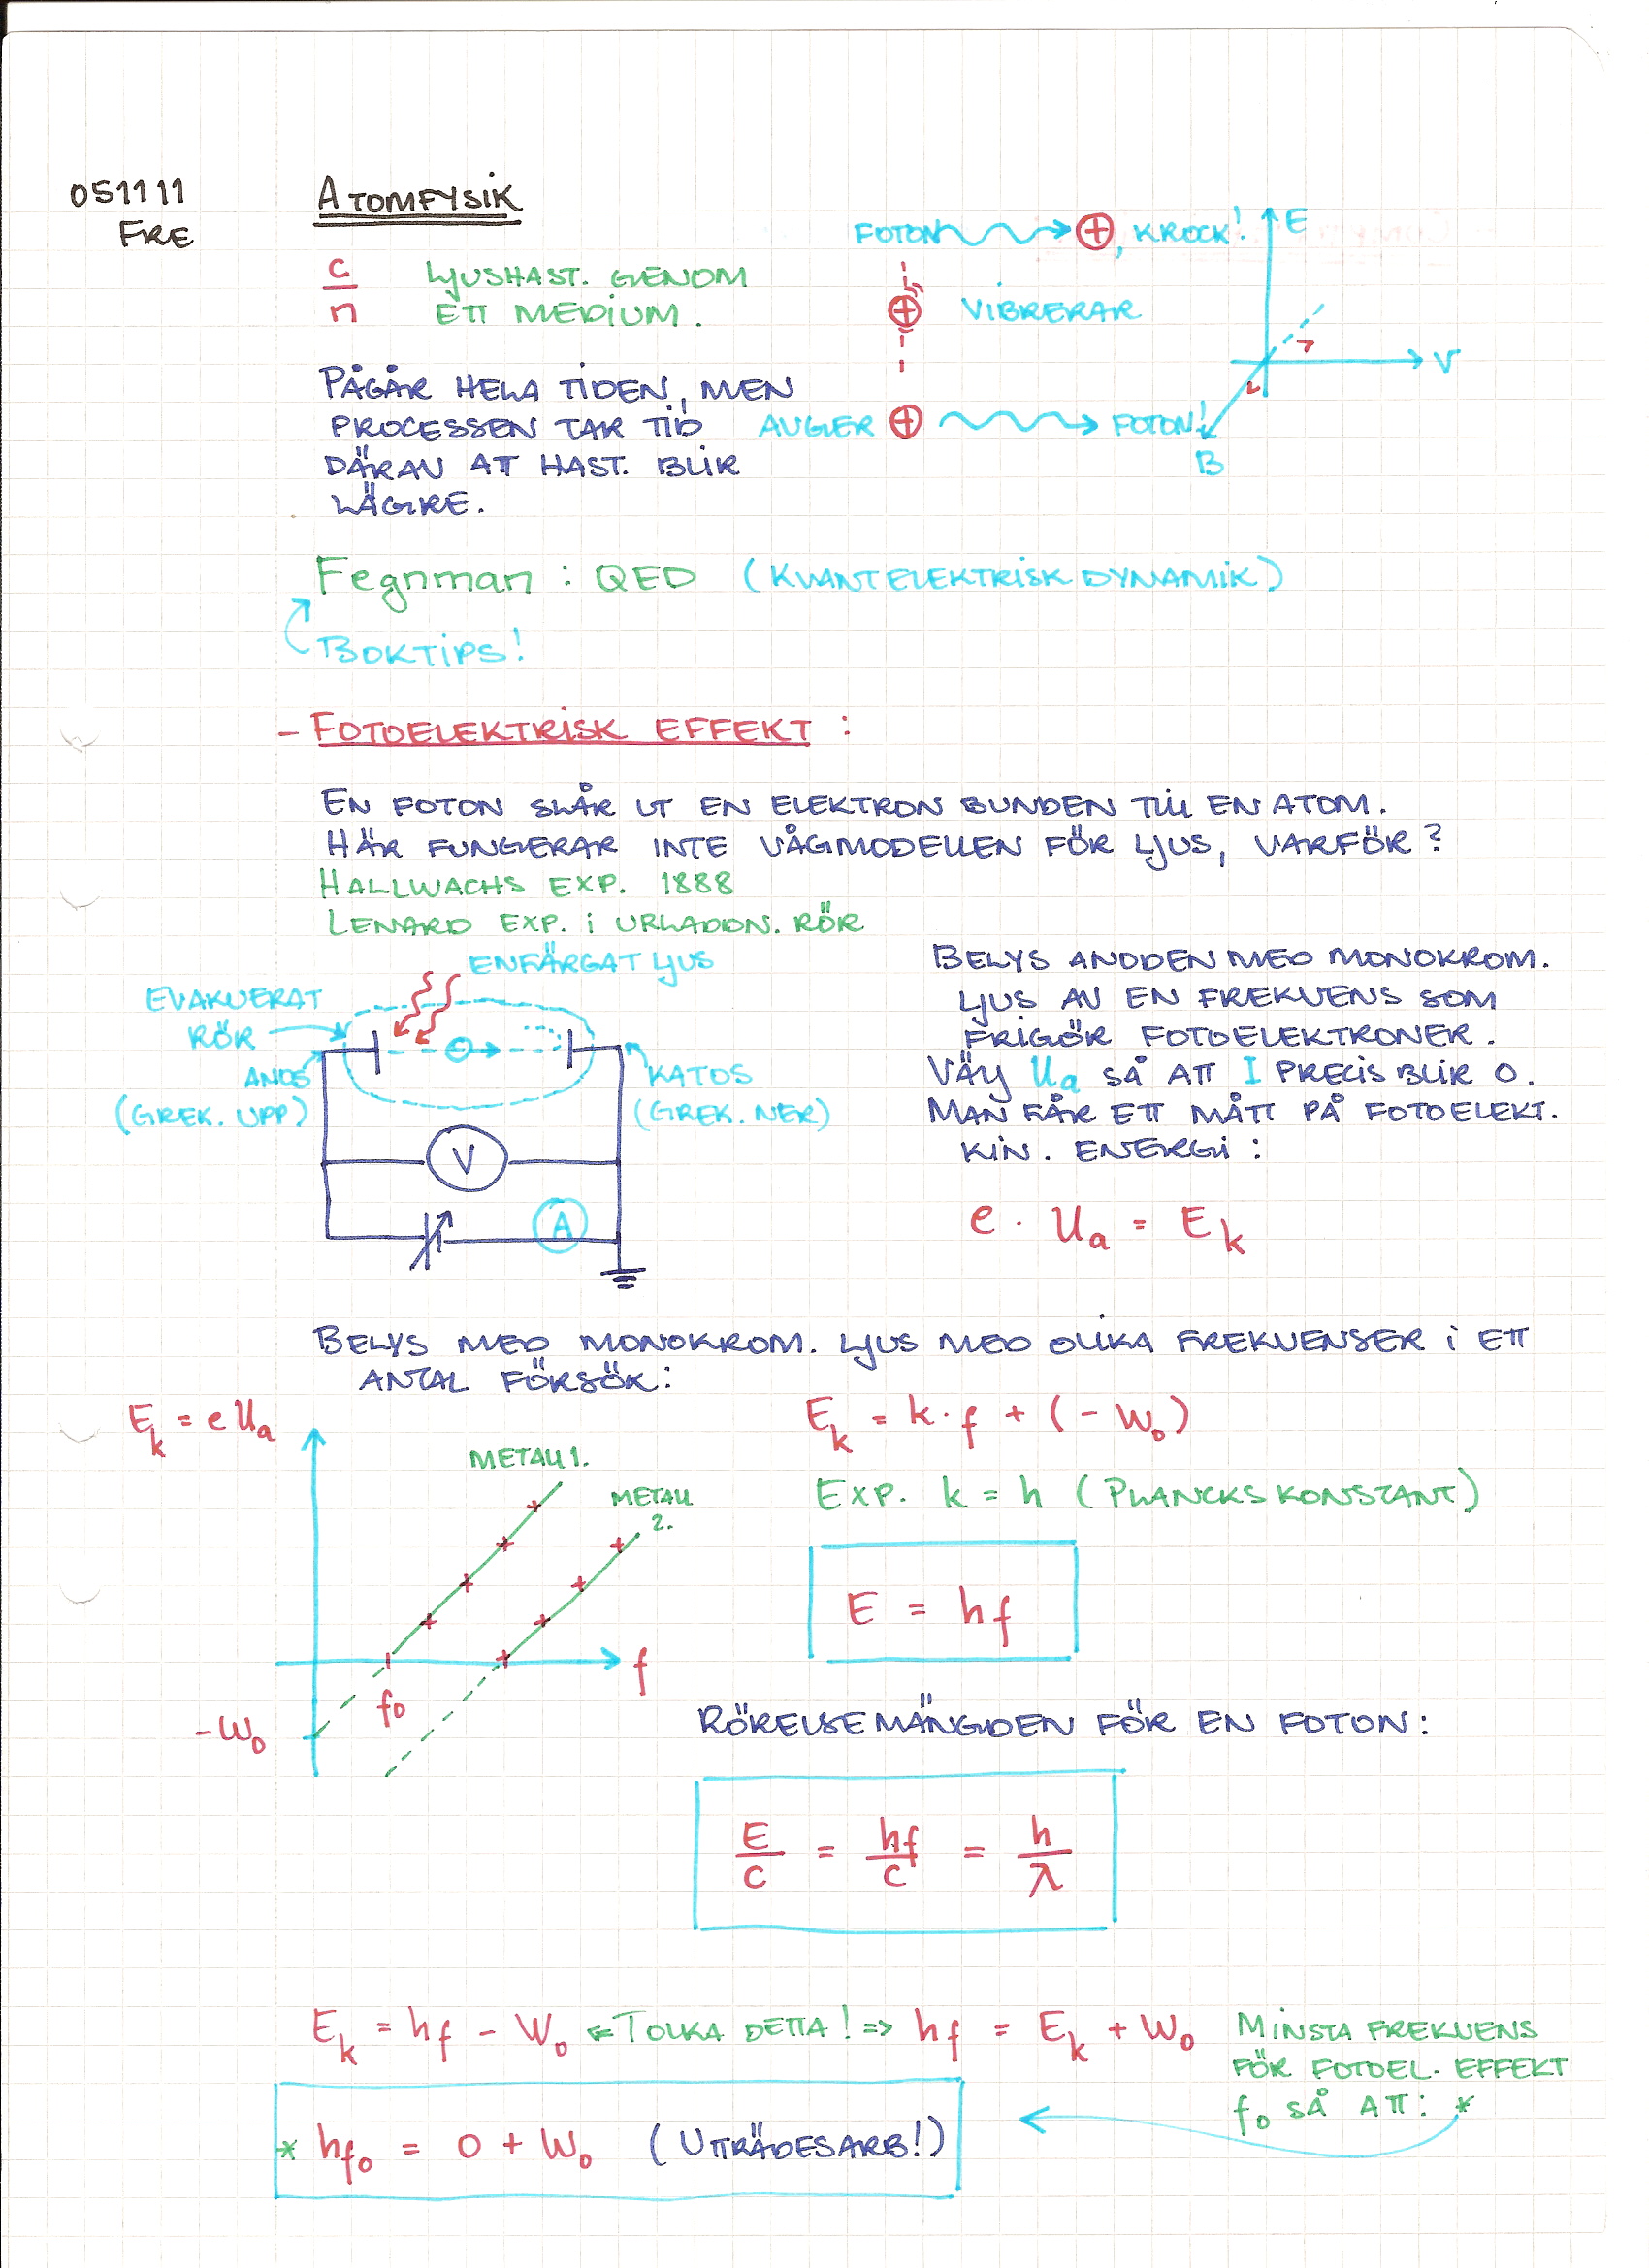 051111
FRE
ATOMFYSIK
c/n LJUSHAST. GENOM
ETT MEDIUM.
FOTON ⊕, KROCK!
⊕ VIBRERAR
AVGER ⊕ FOTON!
E
V
B
PÅGÅR HELA TIDEN, MEN
PROCESSEN TAR TID
DÄRAV ATT HAST. BLIR
LÄGRE.
Fegnman : QED (KVANTELEKTRISK DYNAMIK)
BOKTIPS!
- FOTOELEKTRISK EFFEKT :
EN FOTON SLÅR UT EN ELEKTRON BUNDEN TILL EN ATOM.
HÄR FUNGERAR INTE VÅGMODELLEN FÖR LJUS, VARFÖR?
HALLWACHS EXP. 1888
LENARD EXP. I URLADDN. RÖR
ENFÄRGAT LJUS
EVAKUERAT
RÖR
ANOD
(GREK. UPP)
KATOD
(GREK. NER)
V
A
BELYS ANODEN MED MONOKROM.
LJUS AV EN FREKVENS SOM
FRIGÖR FOTOELEKTRONER.
VÄLJ Ua SÅ ATT I PRECIS BLIR 0.
MAN FÅR ETT MÅTT PÅ FOTOELEKT.
KIN. ENERGI :
e · Ua = Ek
BELYS MED MONOKROM. LJUS MED OLIKA FREKVENSER I ETT
ANTAL FÖRSÖK:
Ek = e Ua
METALL 1.
METALL
2.
f
f0
-W0
Ek = k·f + (-W0)
EXP. k = h (PLANCKS KONSTANT)
E = hf
RÖRELSEMÄNGDEN FÖR EN FOTON:
E/c = hf/c = h/λ
Ek = hf - W0 ⇐ TOLKA DETTA! ⇒ hf = Ek + W0
MINSTA FREKVENS
FÖR FOTOEL. EFFEKT
f0 SÅ ATT: *
* hf0 = 0 + W0 (UTTRÄDESARB!)